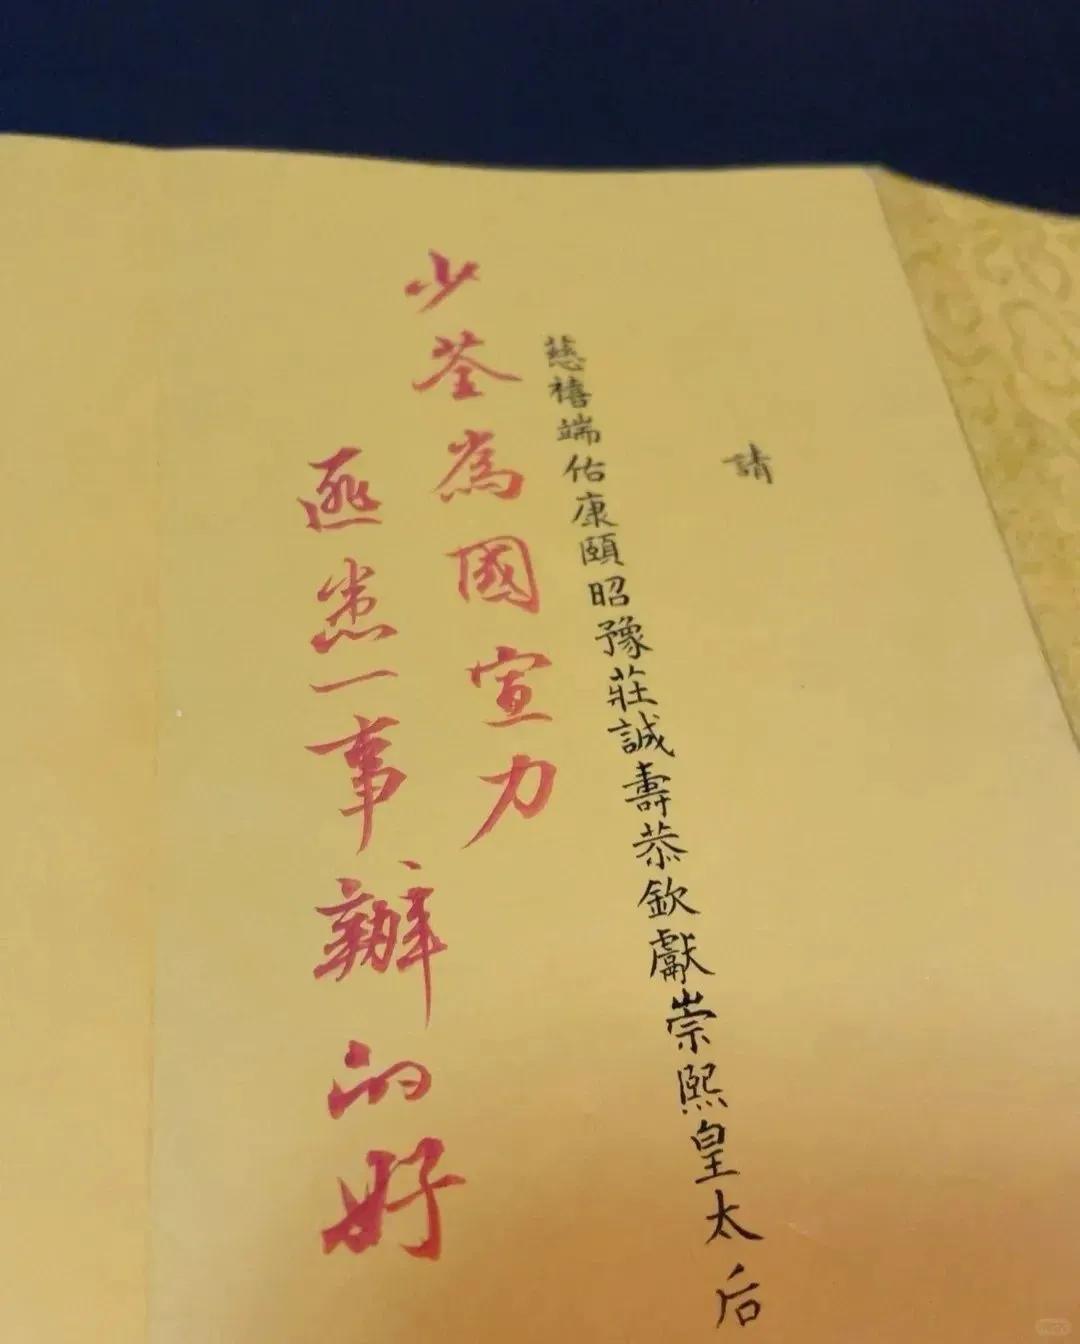 請
慈禧端佑康頤昭豫莊誠壽恭欽獻崇熙皇太后
少荃為國宣力
匪患一事辦的好